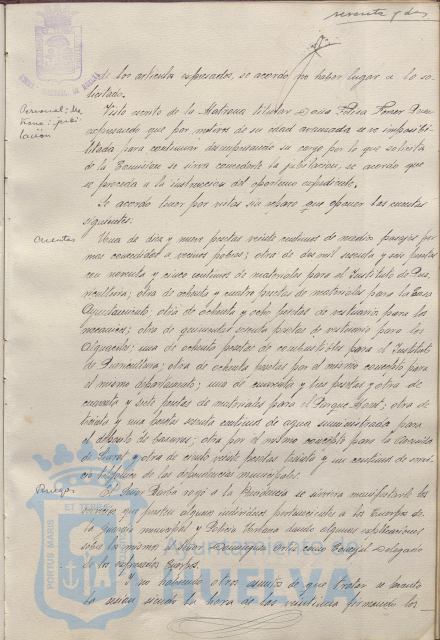 sesenta y dos
de los articulos expresados, se acordo no haber lugar a lo so-
licitado.
Personal: Ma-
trona: jubi-
lación
Visto escrito de la Matrona titular Doña
expresando que por motivos de su edad avanzada se ve imposibi-
litada para continuar desempeñando su cargo por lo que solicita
de la Comision se sirva concederle la jubilacion, se acordo que
se proceda a la instruccion del oportuno expediente.
Se acordo tener por vistas sin reparo que oponer las cuentas
siguientes:
Cuentas
Una de diez y nueve pesetas veinte centimos de medios pasajes por
mar concedidos a vecinos pobres; otra de dos mil sesenta y seis pesetas
con noventa y cinco centimos de materiales para el Instituto de Pue-
ricultura; otra de ochenta y cuatro pesetas de materiales para la Casa
Ayuntamiento; otra de ochenta y ocho pesetas de vestuario para los
mecanicos; otra de quinientas sesenta pesetas de vestuario para los
Alguaciles; una de ochenta pesetas de combustible para el Instituto
de Puericultura; otra de ochenta pesetas por el mismo concepto para
el mismo departamento; una de cuarenta y tres pesetas y otra de
cuarenta y siete pesetas de materiales para el Parque Movil; otra de
treinta y una pesetas sesenta centimos de agua suministrada para
el deposito de basuras; otra por el mismo concepto para la
de y otra de ciento veinte pesetas treinta y un centimos de servi-
cio telefonico de las dependencias municipales.
Ruegos
El Señor Barba rogó a la Presidencia se sirviera manifestarle los
servicios que prestan algunos individuos pertenecientes a los Cuerpos de
la guardia municipal y Policia Urbana dando algunas explicaciones
sobre lo mismo el señor Dominguez Ortiz como Concejal Delegado
de los expresados Cuerpos.
Y no habiendo otros asuntos de que tratar se levantó
la sesion siendo la hora de las veintiuna firmando los
PORTUS MARIS ET TERRAE
Ayuntamiento de
HUELVA